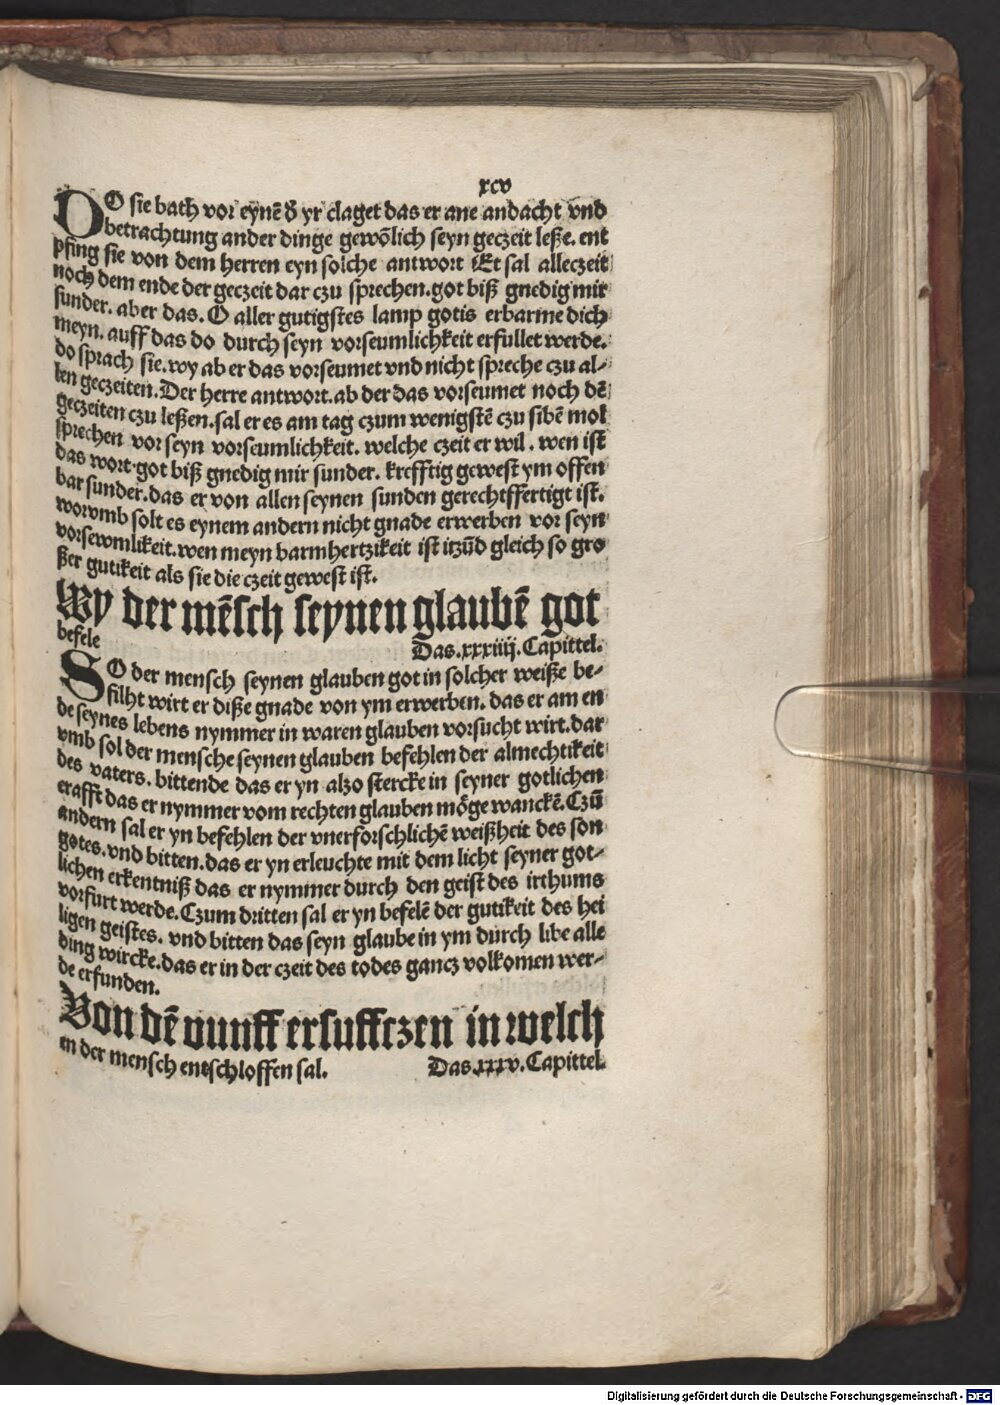 xcv
DO sie bath vor eynē d̕ yr claget das er ane andacht vnd
betrachtung ander dinge gewőlich seyn geczeit leße. ent
pfing sie von dem herren eyn solche antwort Et sal alleczeit
noch dem ende der geczeit dar czu sprechen. got biß gnedig mir
sunder. aber das. O aller gutigstes lamp gotis erbarme dich
meyn. auff das do durch seyn vorseumlichkeit erfullet werde.
do sprach sie. wy ab er das vorseumet vnd nicht spreche czu al⸗
len geczeiten. Der herre antwort. ab der das vorseumet noch dē
geczeiten czu leßen. sal er es am tag czum wenigstē czu sibē mol
sprechen vor seyn vorseumlichkeit. welche czeit er wil. wen ist
das wort. got biß gnedig mir sunder. krefftig gewest ym offen
bar sunder. das er von allen seynen sunden gerechtffertigt ist.
worvmb solt es eynem andern nicht gnade erwerben vor seyn
vorsewmlikeit. wen meyn barmhertzikeit ist itzūd gleich so gro
ßer gutikeit als sie die czeit gewest ist.
Wy der mēsch seynen glaubē got
befele Das .xxxiiij. Capittel.
SO der mensch seynen glauben got in solcher weiße be⸗
filht wirt er diße gnade von ym erwerben. das er am en
de seynes lebens nymmer in waren glauben vorsucht wirt. dar
vmb sol der mensche seynen glauben befehlen der almechtikeit
des vaters. bittende das er yn alzo stercke in seyner gotlichen
crafft das er nymmer vom rechten glauben mőge wanckē. Czū
andern sal er yn befehlen der vnerforschlichē weißheit des son
gotes. vnd bitten. das er yn erleuchte mit dem licht seyner got⸗
lichen erkentniß das er nymmer durch den geist des irthums
vorfurt werde. Czum dritten sal er yn befelē der gutikeit des hei
ligen geistes. vnd bitten das seyn glaube in ym durch libe alle
ding wircke. das er in der czeit des todes gancz volkomen wer⸗
de erfunden.
Von dē vunff ersufftzen in welch
en der mensch entschloffen sal. Das .xxxv. Capittel.
Digitalisierung gefördert durch die Deutsche Forschungsgemeinschaft - DFG